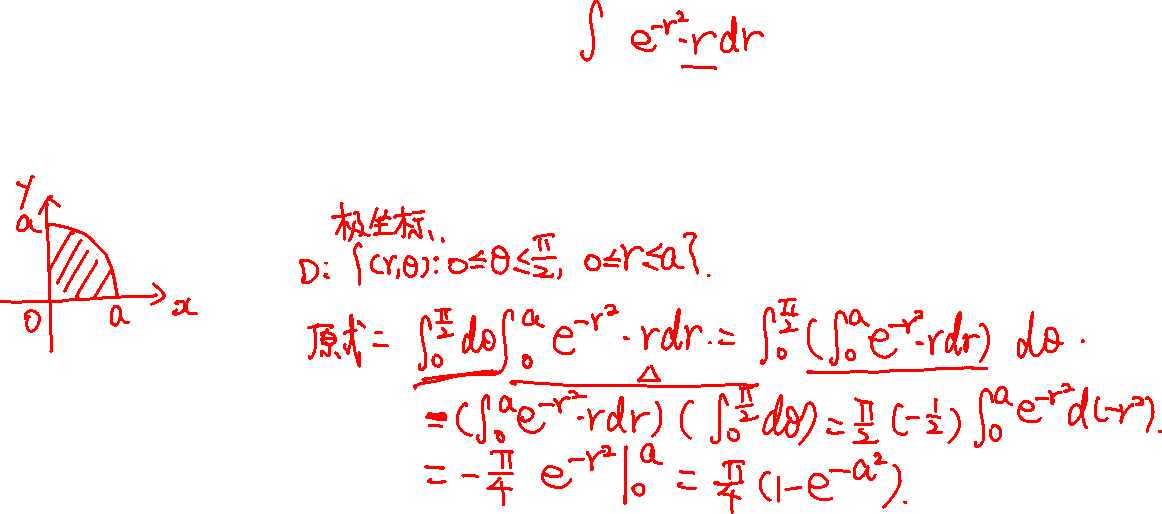 ∫ e^{-r²}·rdr
y
a
0 a x
极坐标:
D: {(r,θ): 0≤θ≤π/2, 0≤r≤a}.
原式 = ∫_0^{π/2} dθ ∫_0^a e^{-r²}·rdr. = ∫_0^{π/2} (∫_0^a e^{-r²}·rdr) dθ.
△
= (∫_0^a e^{-r²}·rdr) (∫_0^{π/2} dθ) = π/2 (-1/2) ∫_0^a e^{-r²} d(-r²).
= -π/4 e^{-r²}|_0^a = π/4 (1-e^{-a²}).